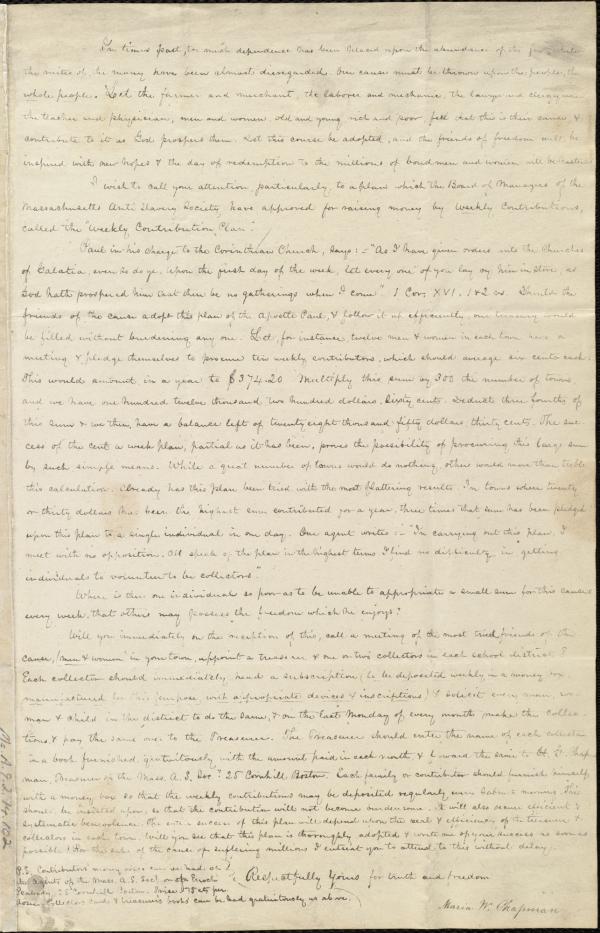 In times past, too much dependence has been placed upon the abundance of the few, while
the mites of the many have been almost disregarded. Our cause must be thrown upon the people, the
whole people. Let the farmer and merchant, the laborer and mechanic, the lawyer and clergyman
the teacher and physician, men and women, old and young, rich and poor, feel that this is their cause, &
contribute to it as God prospers them. Let this course be adopted, and the friends of freedom will be
inspired with new hopes & the day of redemption to the millions of bondmen and women will be hastened
I wish to call your attention, particularly, to a plan which the Board of Managers of the
Massachusetts Anti Slavery Society have approved for raising money by Weekly Contributions,
called the "Weekly Contribution Plan".
Paul in his charge to the Corinthian Church, says: – "As I have given orders unto the Churches
of Galatia, even so do ye. Upon the first day of the week, let every one of you lay by him in store, as
God hath prospered him that there be no gatherings when I come". 1 Cor, XVI. 1 & 2 vs. Should the
friends of the cause adopt this plan of the Apostle Paul, & follow it up efficiently, our treasury would
be filled without burdening any one. Let, for instance, twelve men & women in each town have a
meeting & pledge themselves to procure ten weekly contributors, which should average six cents each.
This would amount in a year to $374.20 Multiply this sum by 300 the number of towns
and we have one hundred twelve thousand, two hundred dollars, sixty cents. Deduct three fourths of
this sum & we then have a balance left of twenty eight thousand fifty dollars, thirty cents. The suc-
cess of the cent a week plan, partial as it has been, proves the possibility of procuring this large sum
by such simple means. While a great number of towns would do nothing, others would more than treble
this calculation. Already has this plan been tried with the most flattering results. In towns where twenty
or thirty dollars has been the highest sum contributed for a year, three times that sum has been pledged
upon this plan to a single individual in one day. One agent writes: – "In carrying out this plan, I
meet with no opposition. All speak of the plan in the highest terms I find no difficulty in getting
individuals to volunteer to be collectors."
Where is there one individual so poor as to be unable to appropriate a small sum for this cause
every week, that others may possess the freedom which he enjoys?
Will you immediately on the reception of this, call a meeting of the most tried friends of the
cause, (men & women) in your town, appoint a treasurer & one or two collectors in each school district?
Each collector should immediately, head a subscription (to be deposited weekly in a money box
manufactured for this purpose with appropriate devices & inscriptions) & solicit every man, wo-
man & child in the district to do the same, & on the last Monday of every month, make the collec-
tions, & pay the same over to the Treasurer. The Treasurer should enter the name of each collector
in a book furnished, gratuitously, with the amount paid in each month & forward the same to H. G. Chap-
man, Treasurer of the Mass. A. S. Soc. 25 Cornhill, Boston. Each family or contributor should furnish himself
with a money box so that the weekly contributions may be deposited regularly every Sabbath morning. This
should be insisted upon, so that the contribution will not become burdensome. It will also secure efficient &
systematic benevolence. The entire success of this plan will depend upon the zeal & efficiency of the treasurer &
collectors in each town. Will you see that this plan is thoroughly adopted & write me of your success as soon as
possible? For the sake of the cause of suffering millions I entreat you to attend to this without delay.
Respectfully Yours for truth and freedom
Maria W. Chapman
P.S. Contributors' money boxes can be had of
the agents of the Mass. A. S. Soc. or of
25 Cornhill Boston. Price
Collectors' cards & treasurers' books can be had gratuitously as above.
Ms. A.9.2.14.102